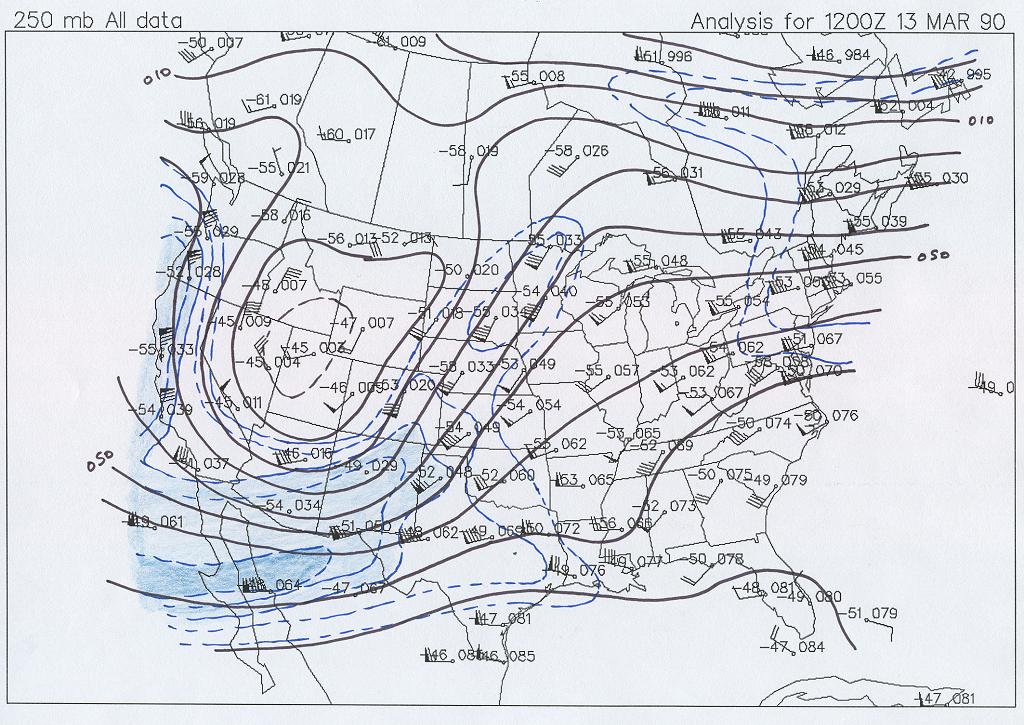 250 mb All data Analysis for 1200Z 13 MAR 90
-50 007
-61 009
51 996
-46 984
-55 008
42 995
010
-61 019
-56 019
-60 017
52 004
011
012
010
-58 019
-58 026
-55 021
-59 028
-56 031
-53 029
-55 030
-58 016
-55 029
-56 013
-52 013
-55 033
-55 043
-55 039
-54 045
050
-52 028
-50 020
-55 048
-48 007
-54 040
-55 053
-53 055
-45 009
-47 007
-51 018
-55 034
-55 054
-55 033
-45 003
-45 004
-54 062
-51 067
-58 033
-53 049
-55 057
-53 062
-46 005
-53 020
-50 070
-49 0
-54 039
-45 011
-54 054
-53 067
-50 076
-54 049
-53 065
-50 074
-55 062
-52 069
050
-51 037
-46 016
-49 029
-52 048
-52 060
-53 065
-50 075
-49 079
-54 034
-52 073
-49 061
-51 050
-48 062
-49 069
-50 072
-56 066
-49 076
-49 077
-50 078
-48 064
-47 067
-48 081
-49 080
-51 079
-47 081
-47 084
-46 085
-47 081